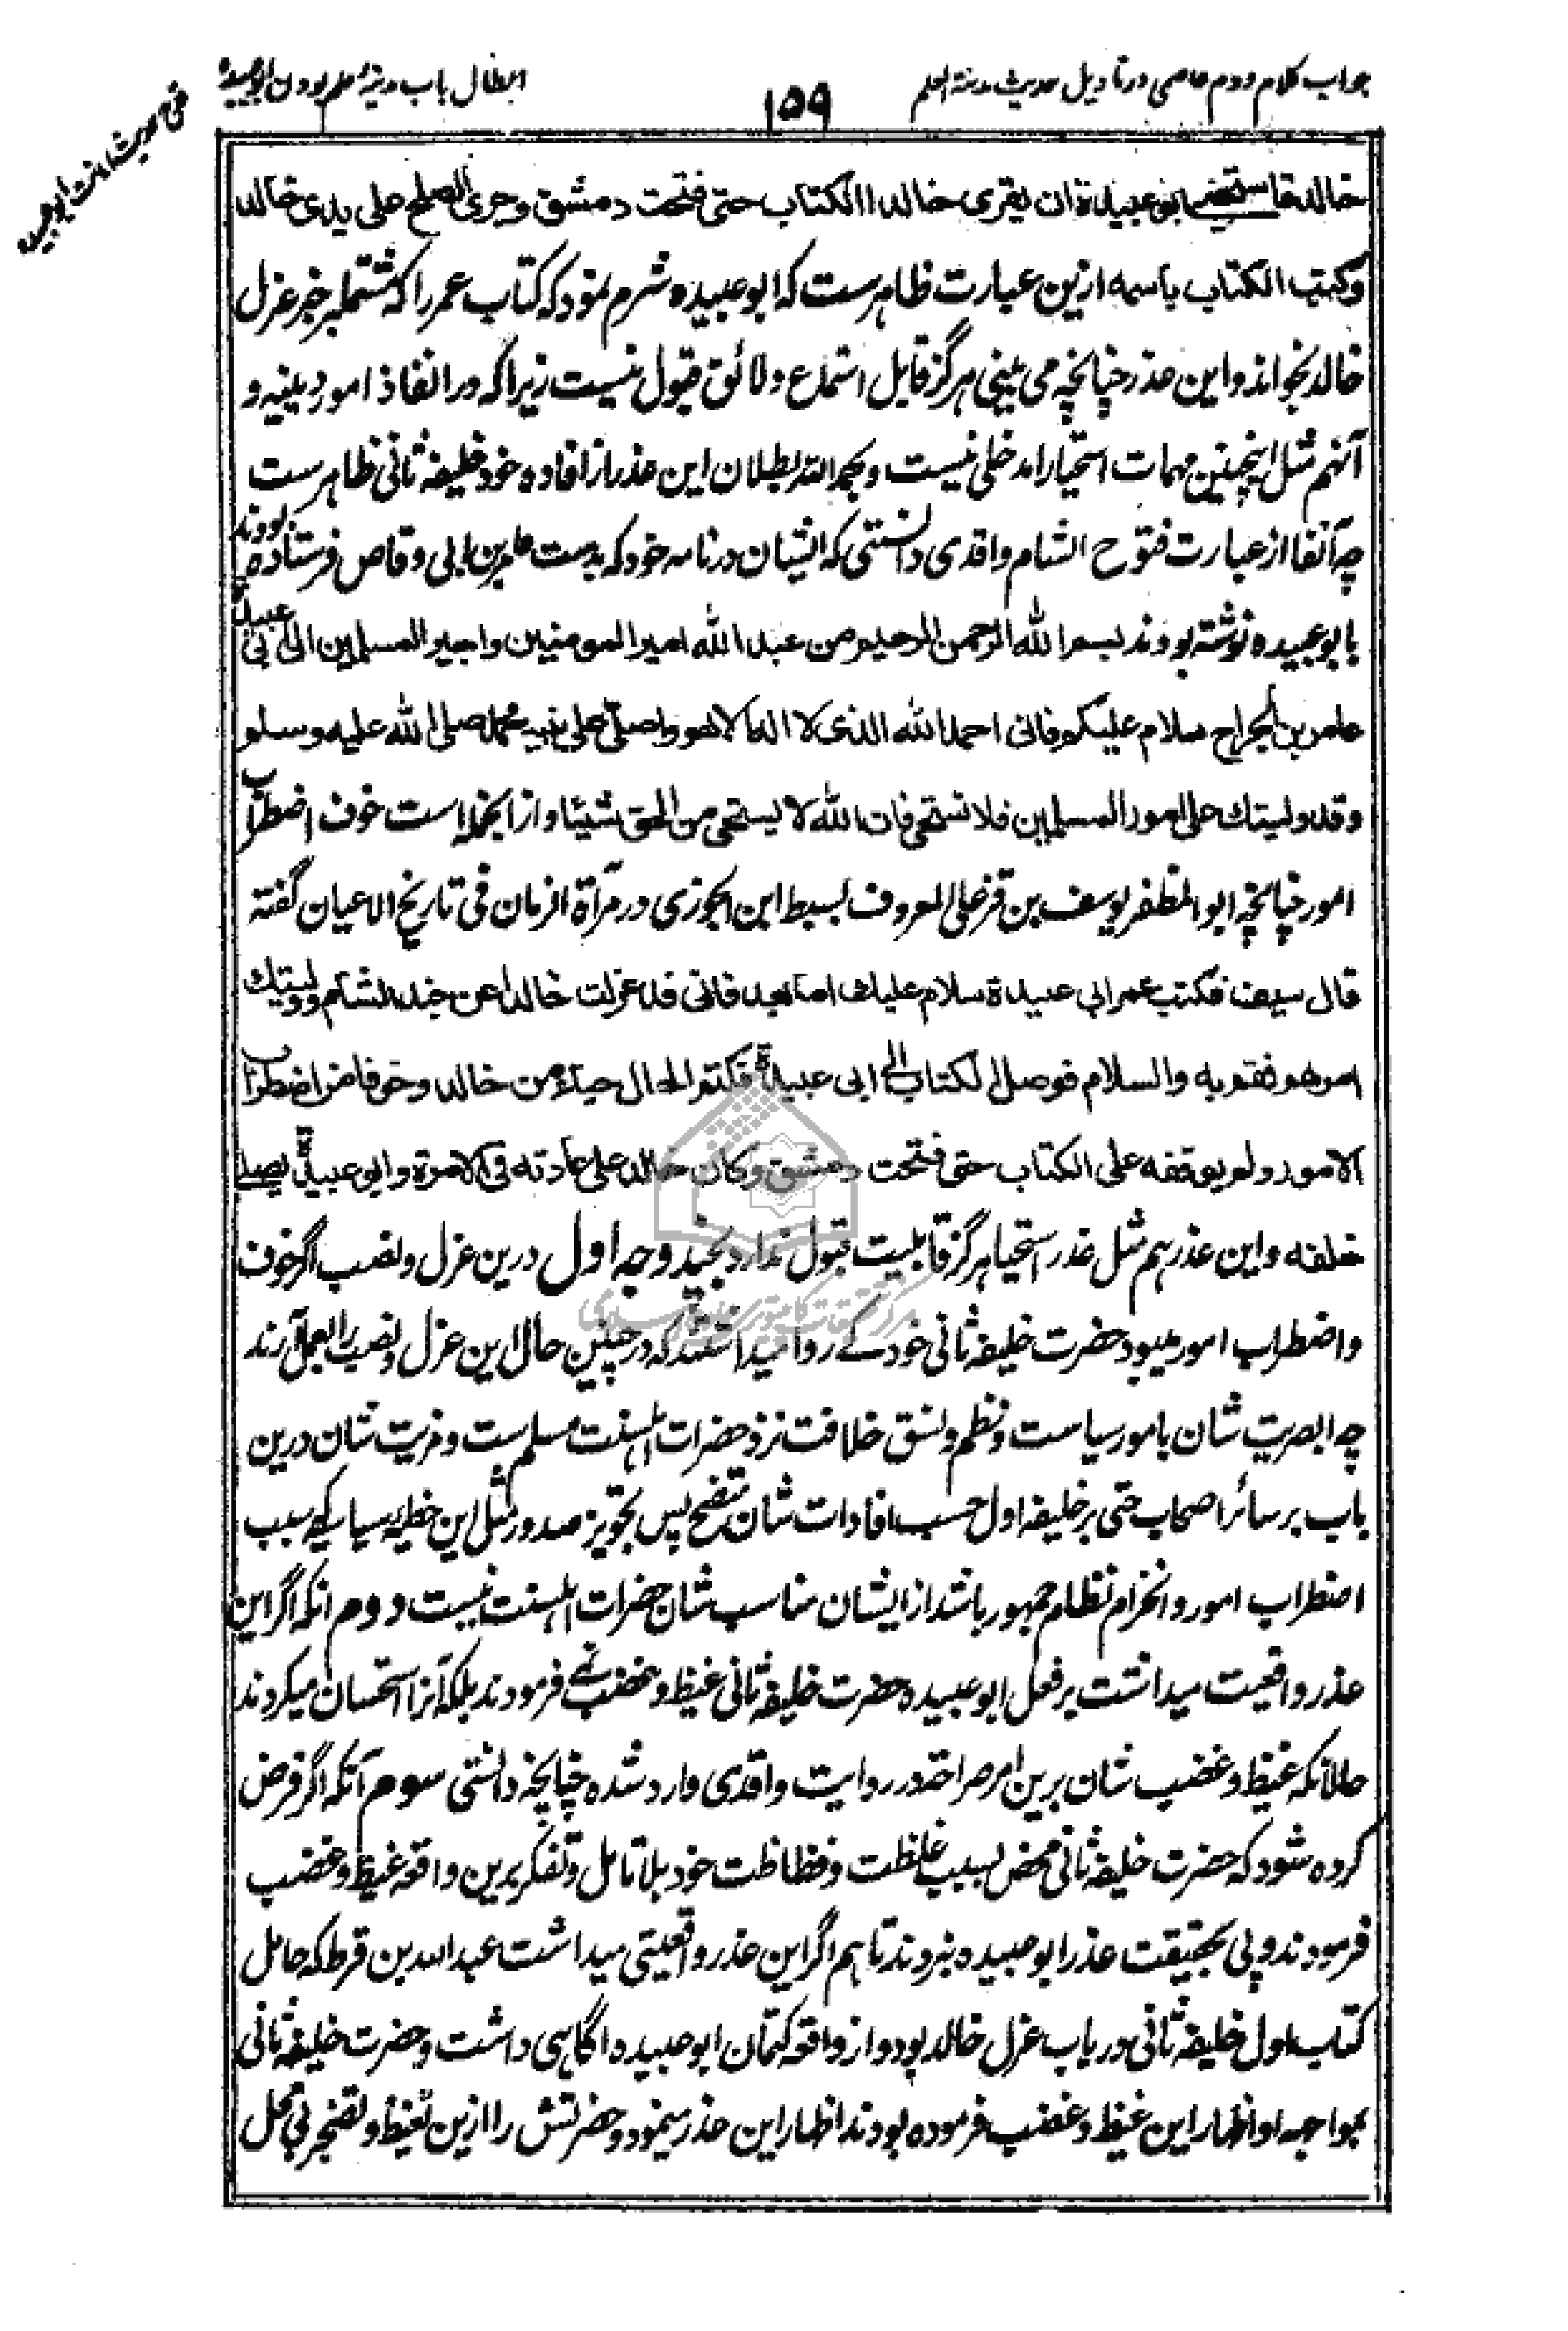 جواب کلام دوم عاصمی در تاویل حدیث مدینة العلم
۱۵۹
ابطال باب مدینۂ علم بودن ابو عبیدہ
فی حدیث امانت ابو عبیدہ
خالد فاستحیی ابو عبیدة ان یقری خالدا الکتاب حتی فتحت دمشق وجری الصلح علی یدی خالد
وکتب الکتاب باسمه ازین عبارت ظاهرست که ابو عبیده شرم نمود که کتاب عمر را که مشتمل بر خبر عزل
خالد بخواند و این عذر چنانچه می بینی هرگز قابل استماع و لائق قبول نیست زیرا که در انفاذ امور دینیه و
آنهم مثل اینچنین مهمات استحیا را مدخلی نیست و بحمد الله بطلان این عذر از افادہ خود خلیفہ ثانی ظاهرست
چه آنفا از عبارت فتوح الشام واقدی دانستی که ایشان در نامه خود که بدست عامر بن ابی وقاص فرستاده بودند
بابو عبیده نوشته بودند بسم الله الرحمن الرحیم من عبد الله امیر المومنین واجیر المسلمین الی ابی عبیدة
عامر بن الجراح سلام علیکم فانی احمد الله الذی لا اله الا هو واصلی علی نبیه محمد صلی الله علیه وسلم
وقد ولیتک علی امور المسلمین فلا تستحی فان الله لا یستحی من الحق شیئا و از انجمله است خوف اضطراب
امور چنانچه ابو المظفر یوسف بن قزغلی المعروف بسبط ابن الجوزی در مرآة الزمان فی تاریخ الاعیان گفته
قال سیف فکتب عمر الی ابی عبیدة سلام علیک اما بعد فانی قد عزلت خالدا عن جند الشام وولیتک
امرهم فقم به والسلام فوصل الکتاب الی ابی عبیدة فکتم الحال حیاء من خالد وخوفا من اضطراب
الامور ولم یوقفه علی الکتاب حتی فتحت دمشق وکان خالد علی عادته فی الامرة وابو عبیدة یصلی
خلفه و این عذر هم مثل عذر استحیا هرگز قابلیت قبول ندارد بچند وجه اول درین عزل و نصب اگر خوف
و اضطراب امور میبود حضرت خلیفہ ثانی خود کے روا میداشتند که در چنین حال این عزل و نصب را بعمل آرند
چه ابصریت شان بامور سیاست و نظم و نسق خلافت نزد حضرات اهلسنت مسلم ست و مزیت شان درین
باب بر سائر اصحاب حتی بر خلیفہ اول حسب افادات شان متضح پس تجویز صدور مثل این خطیئہ سیاسیہ کہ سبب
اضطراب امور و انخرام نظام جمهور باشد از ایشان مناسب شان حضرات اهلسنت نیست دوم آنکه اگر این
عذر واقعیت میداشت بر فعل ابو عبیده حضرت خلیفہ ثانی غیظ و غضب نمی فرمودند بلکه آنرا استحسان میکردند
حالانکه غیظ و غضب شان برین امر صراحةً در روایت واقدی وارد شده چنانچه دانستی سوم آنکه اگر فرض
کرده شود که حضرت خلیفہ ثانی محض بسبب غلظت و فظاظت خود بلا تامل و تفکر برین واقعه غیظ و غضب
فرمودند و پی بحقیقت عذر ابو عبیده نبردند تا هم اگر این عذر واقعیتی میداشت عبد الله بن قرط که حامل
کتاب اول خلیفہ ثانی در باب عزل خالد بود و از واقعه کتمان ابو عبیده آگاهی داشت و حضرت خلیفہ ثانی
بمواجهه او اظهار این غیظ و غضب فرموده بودند اظهار این عذر مینمود و حضرتش را ازین تغیظ و تضجر بی محل